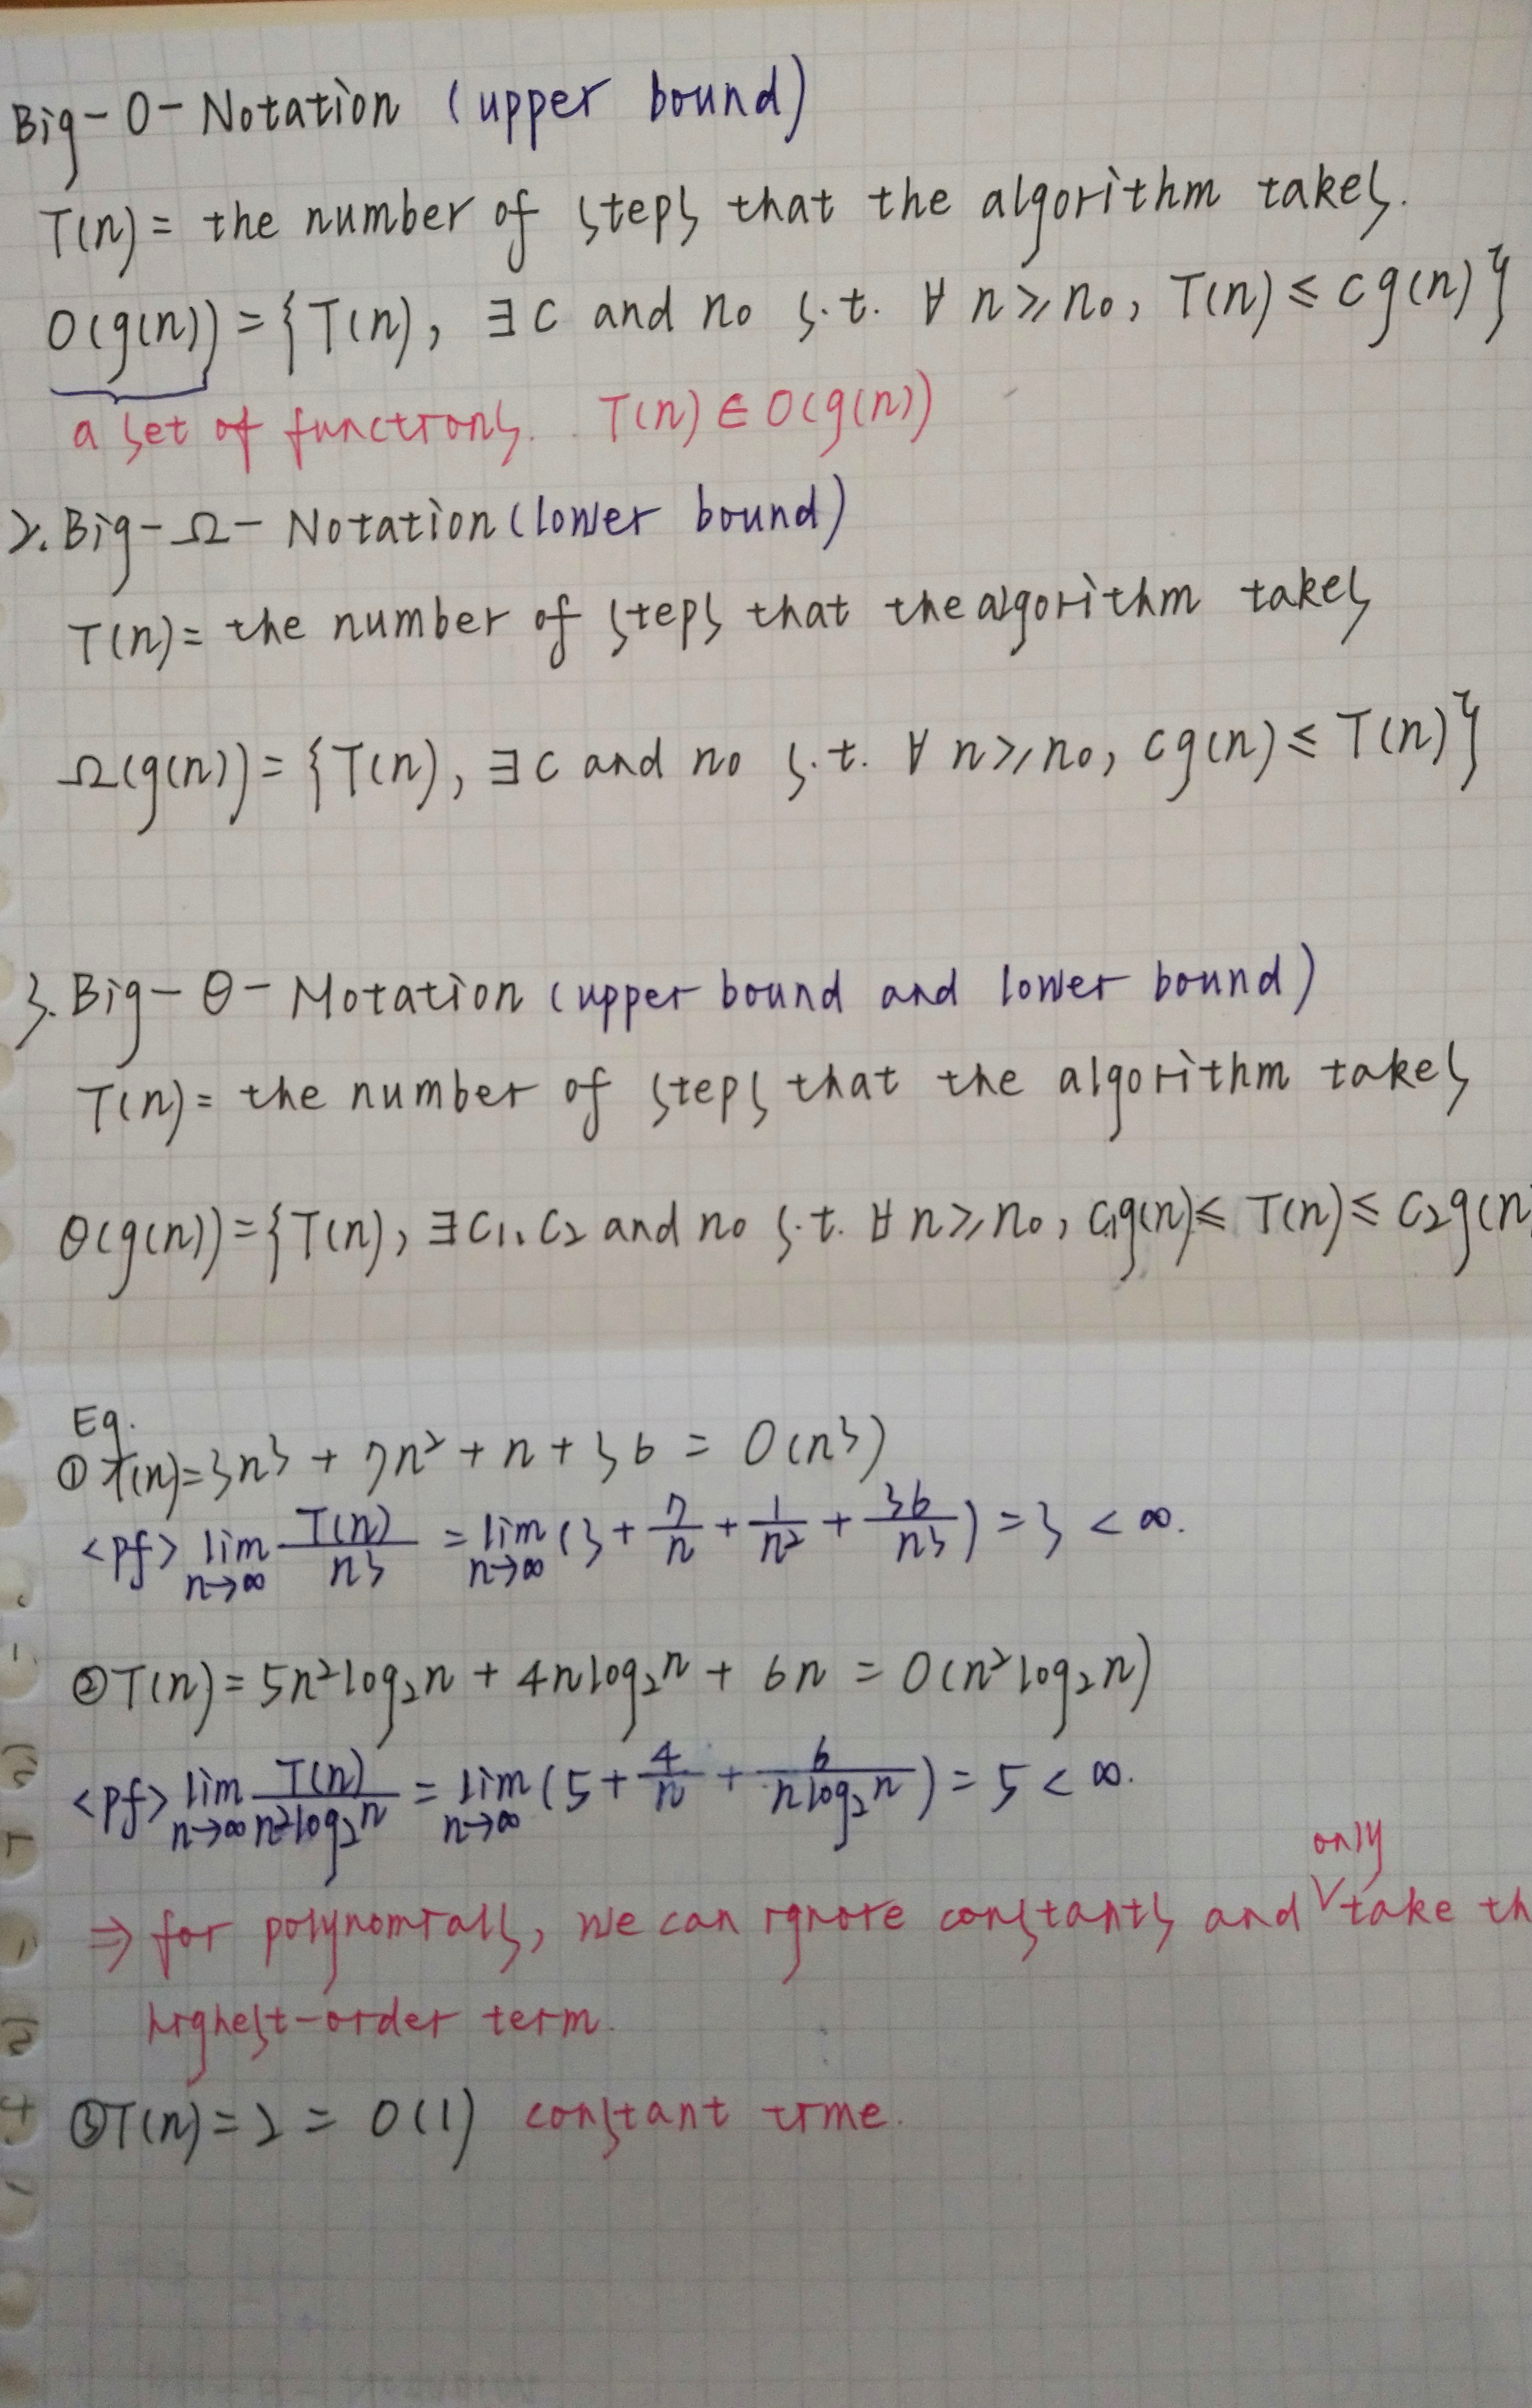 Big-O-Notation (upper bound)
T(n) = the number of steps that the algorithm takes.
O(g(n)) = {T(n), ∃ c and n₀ s.t. ∀ n ≥ n₀, T(n) ≤ c g(n)}
a set of functions. T(n) ∈ O(g(n))
2. Big-Ω-Notation (lower bound)
T(n) = the number of steps that the algorithm takes
Ω(g(n)) = {T(n), ∃ c and n₀ s.t. ∀ n ≥ n₀, c g(n) ≤ T(n)}
3. Big-θ-Notation (upper bound and lower bound)
T(n) = the number of steps that the algorithm takes
θ(g(n)) = {T(n), ∃ c₁, c₂ and n₀ s.t. ∀ n ≥ n₀, c₁g(n) ≤ T(n) ≤ c₂g(n
Eg.
① T(n) = 3n³ + 7n² + n + 36 = O(n³)
<pf> lim n→∞ T(n)/n³ = lim n→∞ (3 + 7/n + 1/n² + 36/n³) = 3 < ∞.
② T(n) = 5n²log₂n + 4nlog₂n + 6n = O(n²log₂n)
<pf> lim n→∞ T(n)/n²log₂n = lim n→∞ (5 + 4/n + 6/nlog₂n) = 5 < ∞.
only
⇒ for polynomials, we can ignore constants and ∨ take th
highest-order term.
③ T(n) = 2 = O(1) constant time.